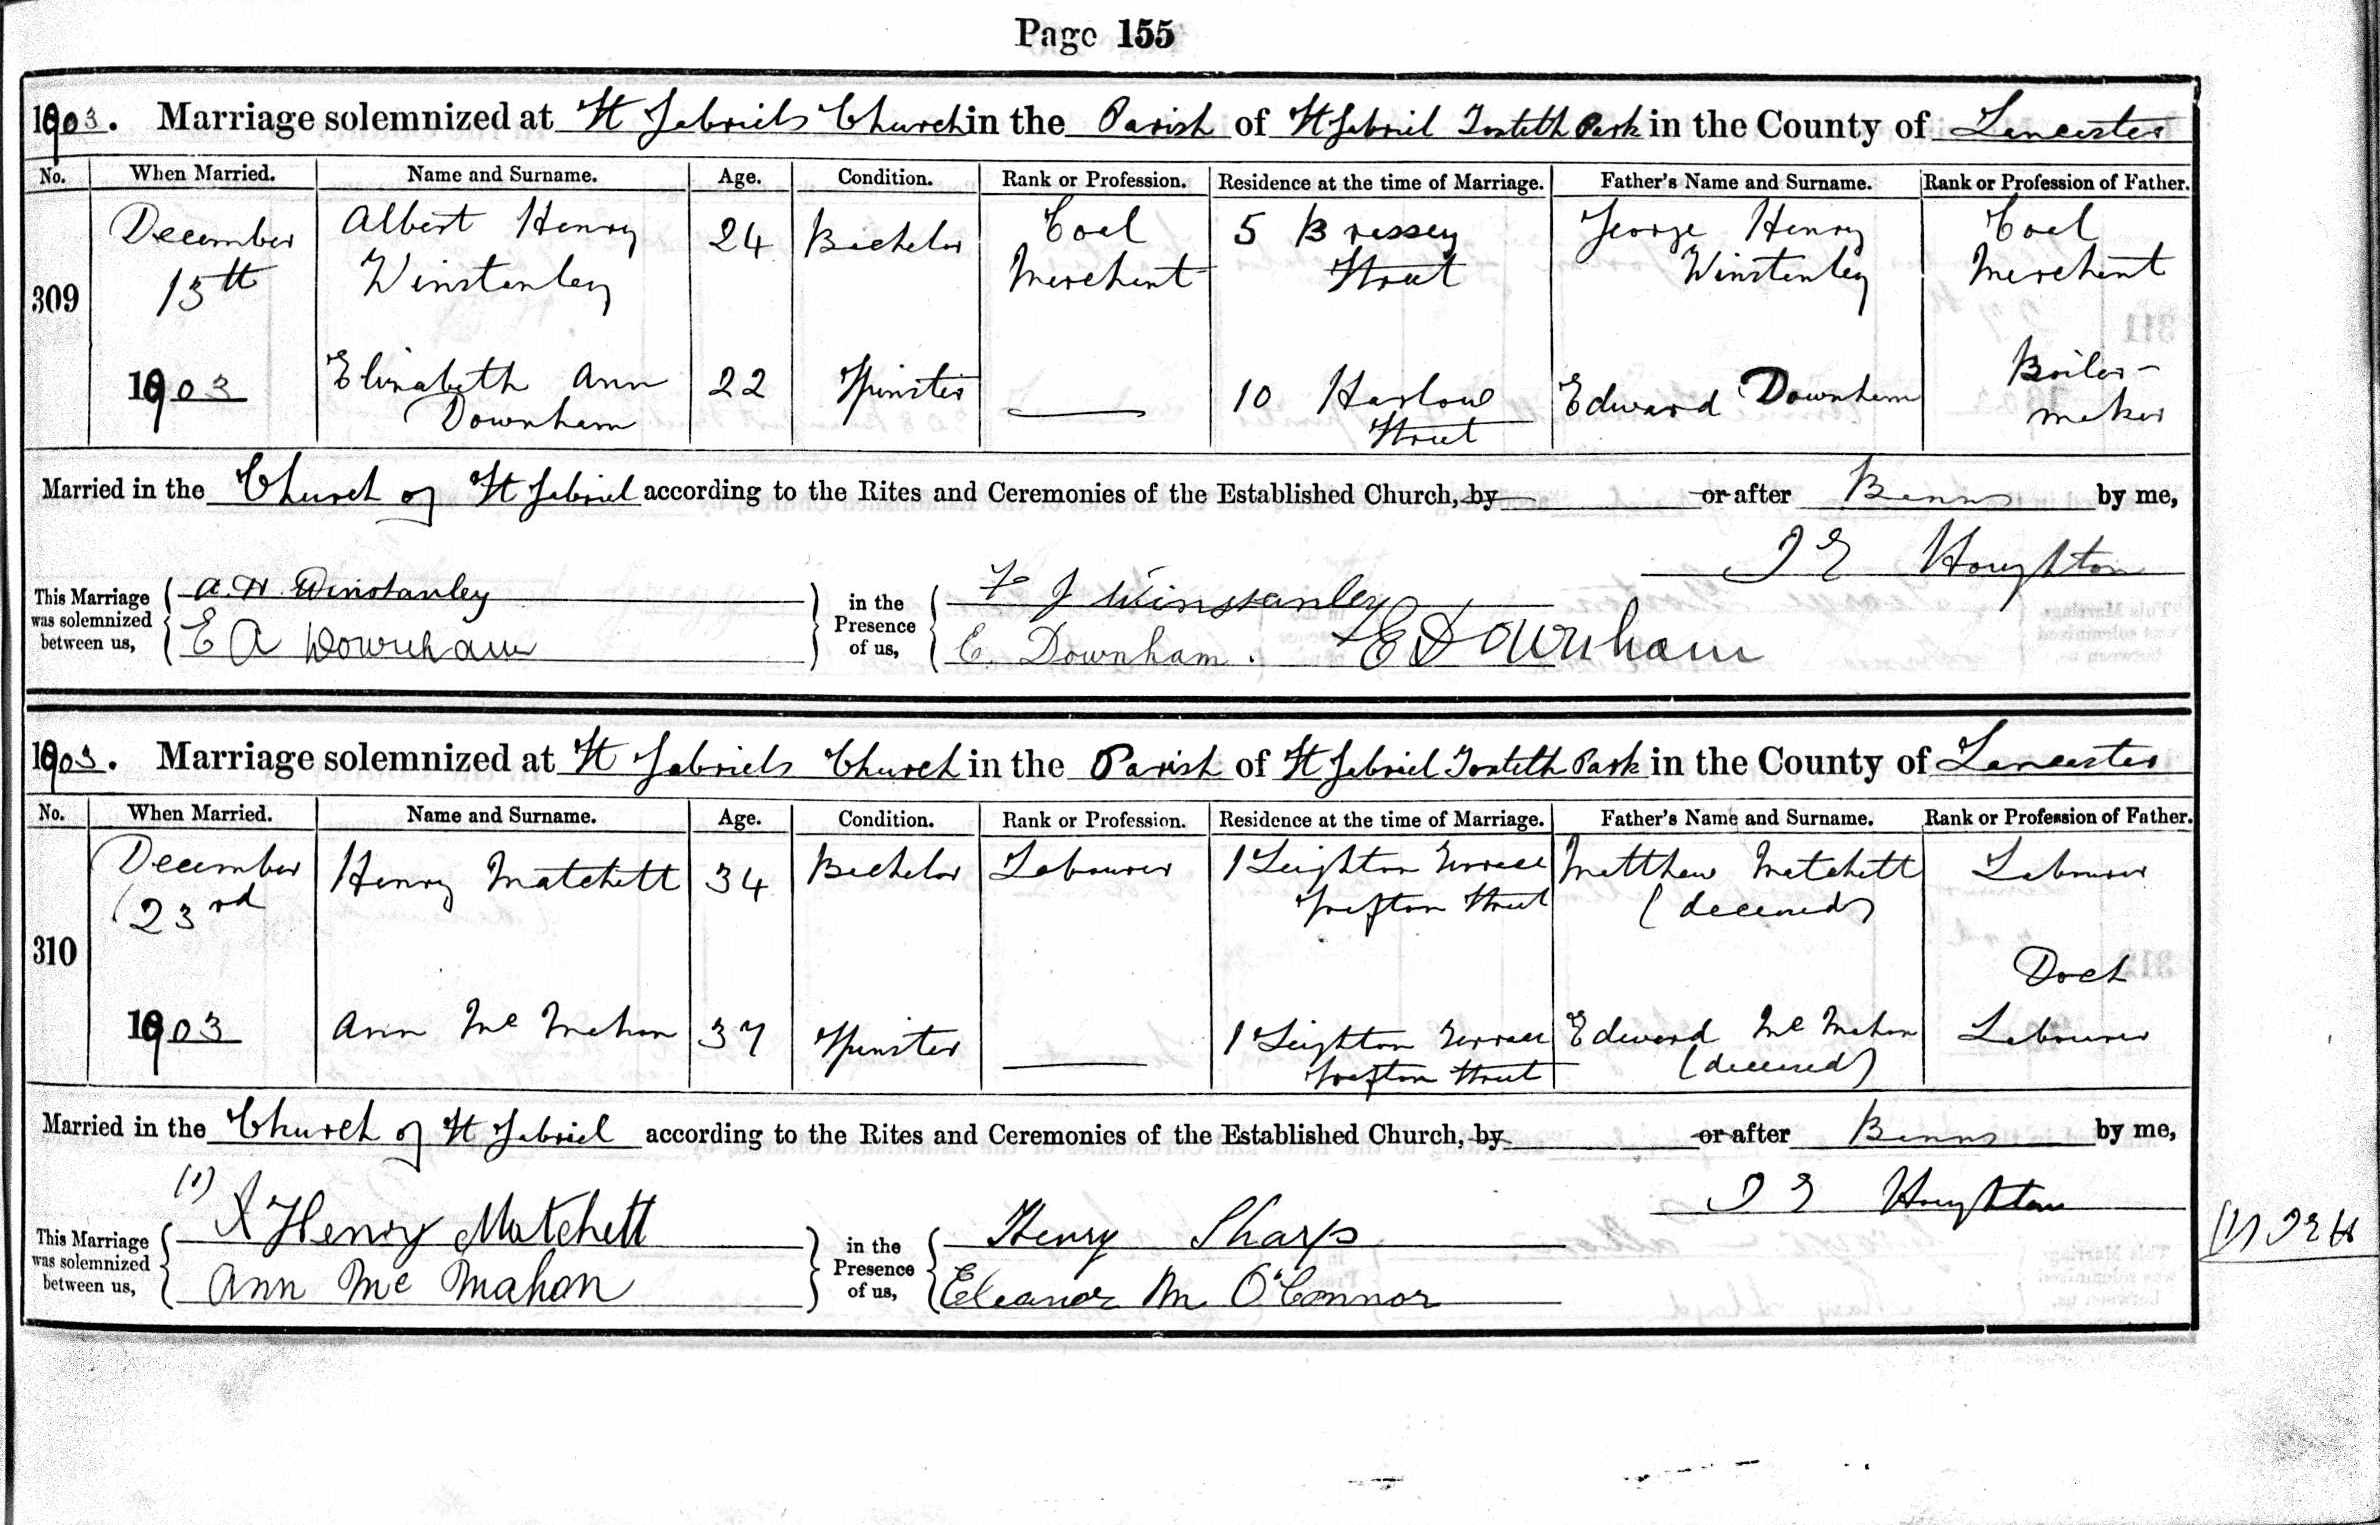 Page 155
1903. Marriage solemnized at St Gabriels Church in the Parish of St Gabriel Toxteth Park in the County of Lancaster
No. When Married. Name and Surname. Age. Condition. Rank or Profession. Residence at the time of Marriage. Father's Name and Surname. Rank or Profession of Father.
309 December 15th 1903
Albert Henry Winstanley 24 Bachelor Coal Merchant 5 Brassey Street George Henry Winstanley Coal Merchant
Elizabeth Ann Downham 22 Spinster — 10 Harlow Street Edward Downham Boiler-maker
Married in the Church of St Gabriel according to the Rites and Ceremonies of the Established Church, by or after Banns by me,
Houghton
This Marriage was solemnized between us,
A. H. Winstanley
E A Downham
in the Presence of us,
F J Winstanley
E. Downham. E Downham
1903. Marriage solemnized at St Gabriels Church in the Parish of St Gabriel Toxteth Park in the County of Lancaster
No. When Married. Name and Surname. Age. Condition. Rank or Profession. Residence at the time of Marriage. Father's Name and Surname. Rank or Profession of Father.
310 December 23rd 1903
Henry Matchett 34 Bachelor Labourer 1 Leighton Terrace Grafton Street Matthew Matchett (deceased) Labourer
Ann Mc Mahon 37 Spinster — 1 Leighton Terrace Grafton Street Edward Mc Mahon (deceased) Dock Labourer
Married in the Church of St Gabriel according to the Rites and Ceremonies of the Established Church, by or after Banns by me,
Houghton
(1)
This Marriage was solemnized between us,
X Henry Matchett
Ann Mc Mahon
in the Presence of us,
Henry Sharp
Eleanor M. O'Connor
(1)